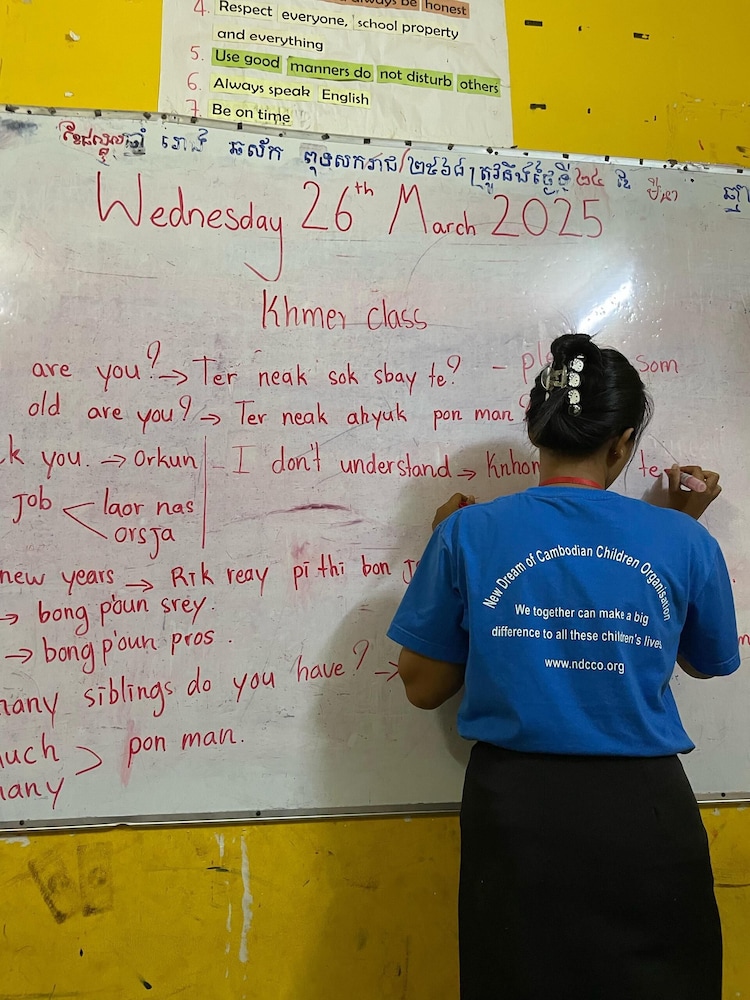 4. Respect everyone, school property
and everything
5. Use good manners do not disturb others
6. Always speak English
7. Be on time
ឆ្នាំ រោង ឆស័ក ពុទ្ធសករាជ ២៥៦៨ ត្រូវនឹងថ្ងៃទី ២៤ ខែ មីនា ឆ្នាំ
Wednesday 26th March 2025
Khmer class
are you? → Ter neak sok sbay te? - som
old are you? → Ter neak ahyuk pon man
k you. → Orkun - I don't understand → Knhom te
job laor nas
orsja
new years → Rik reay pi thi bon
→ bong p'oun srey.
→ bong p'oun pros.
many siblings do you have? →
much > pon man.
many
New Dream of Cambodian Children Organisation
We together can make a big
difference to all these children's lives
www.ndcco.org